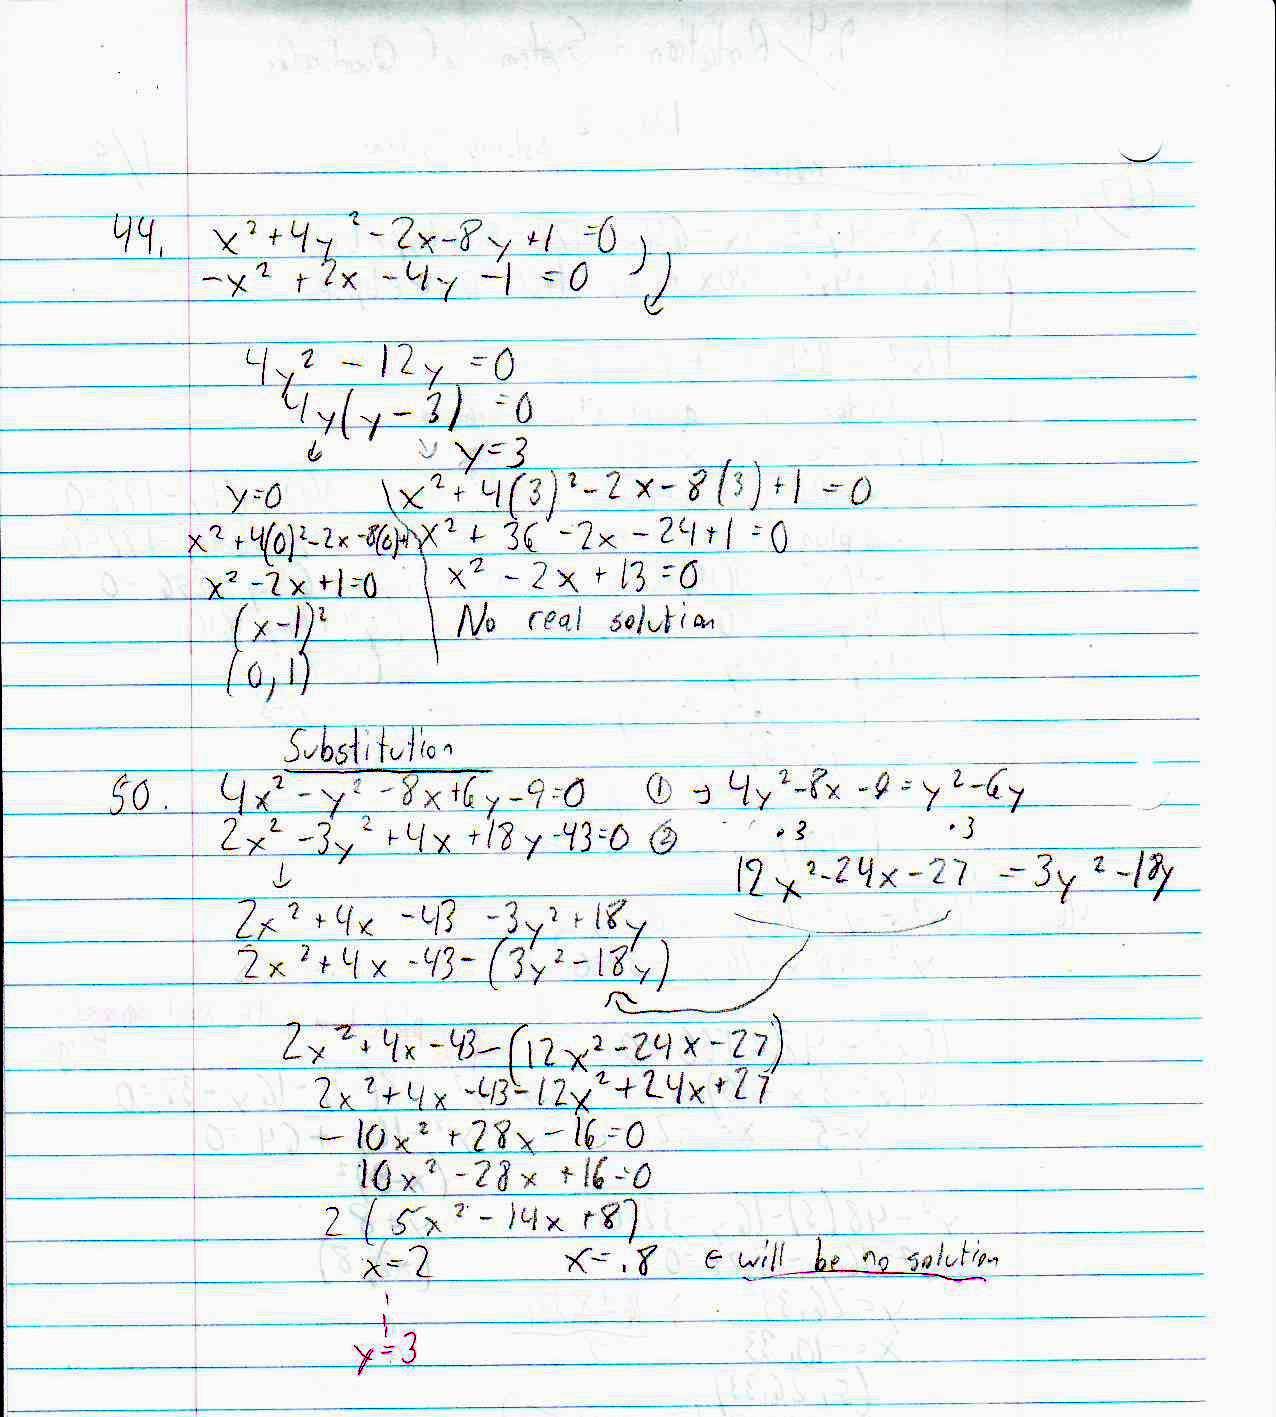 44. x² + 4y² - 2x - 8y + 1 = 0
-x² + 2x - 4y - 1 = 0
4y² - 12y = 0
4y(y - 3) = 0
y = 3
y=0
x² + 4(3)² - 2x - 8(3) + 1 = 0
x² + 4(0)² - 2x - 8(0) + 1
x² + 36 - 2x - 24 + 1 = 0
x² - 2x + 1 = 0
x² - 2x + 13 = 0
(x-1)²
No real solution
(0, 1)
Substitution
50. 4x² - y² - 8x + 6y - 9 = 0 ① → 4y² - 8x - 9 = y² - 6y
2x² - 3y² + 4x + 18y - 43 = 0 ② · 3 · 3
12x² - 24x - 27 = 3y² - 18y
2x² + 4x - 43 - 3y² + 18y
2x² + 4x - 43 - (3y² - 18y)
2x² + 4x - 43 - (12x² - 24x - 27)
2x² + 4x - 43 - 12x² + 24x + 27
- 10x² + 28x - 16 = 0
10x² - 28x + 16 = 0
2(5x² - 14x + 8)
x = 2 x = .8 ← will be no solution
y = 3